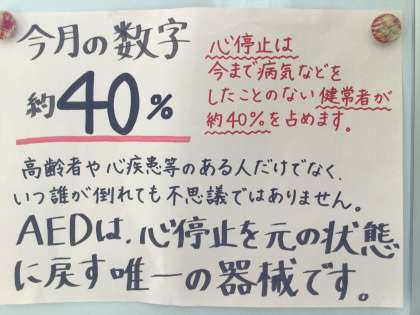 今月の数字
約40%
心停止は
今まで病気などを
したことのない健常者が
約40%を占めます。
高齢者や心疾患等のある人だけでなく、
いつ誰が倒れても不思議ではありません。
AEDは、心停止を元の状態
に戻す唯一の器械です。